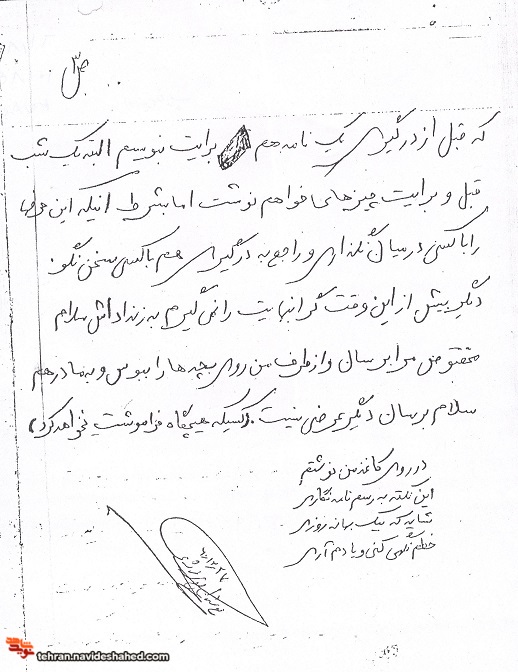 ص ۳
که قبل از درگیری یک نامه هم برایت نویسم البته یک شب
قبل و برایت چیزهای خواهم نوشت اما بشرط آنیکه این حرفها
را با کسی در میان نگذاری و راجع به درگیری هم با کسی سخن نگو
دیگر بیش از این وقت گرانبهایت را نمی گیرم به زنداداش سلام
مخصوص مرا برسان و از طرف من روی بچه ها را ببوس و به مادر هم
سلام برسان دیگر عرضی نیست. (کسیکه هیچگاه فراموشت نخواهد کرد)
در روی کاغذ من نوشتم
این نکته به رسم نامه نگاری
شاید که یک بهانه روزی
خطم نگهی کنی و یادم آری
۶۰/۱۲/۲۷
نوید شاهد
tehran.navideshahed.com